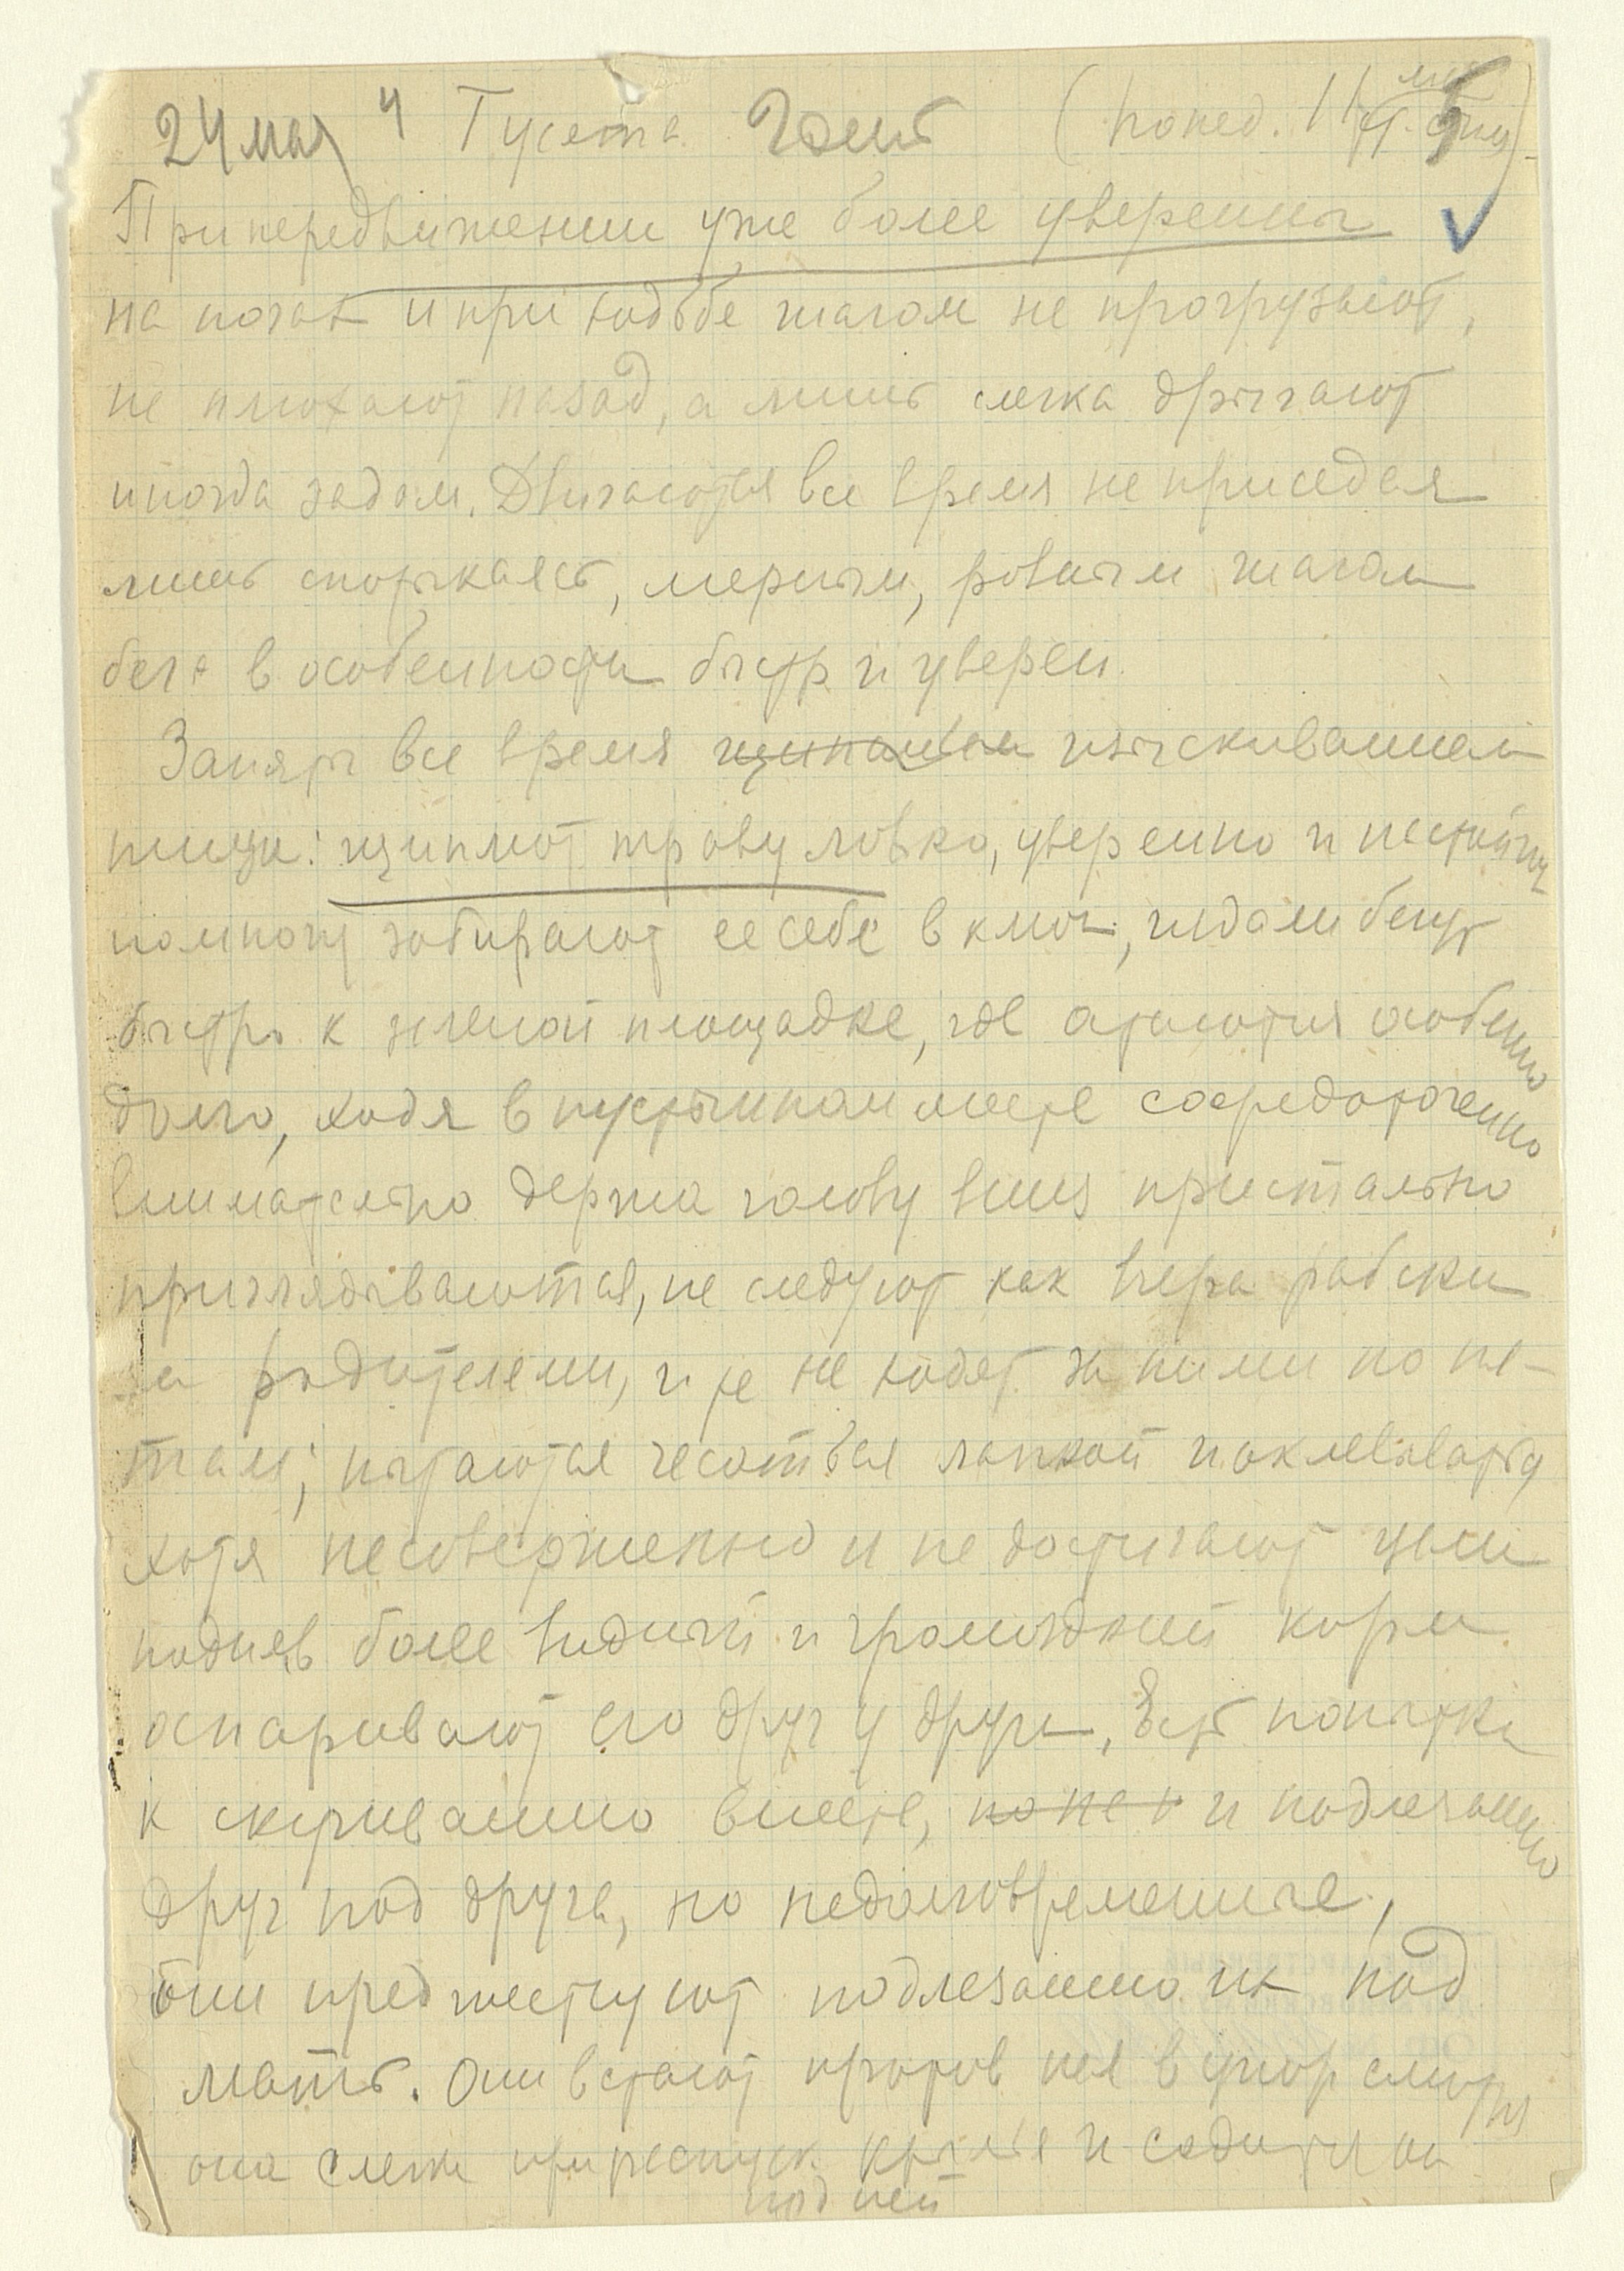 24 мая Гусята (понед. 11
При передвижении уже более уверены
на ногах и при ходьбе шагом не
не плюхают назад, а лишь слегка дрыгают
иногда задом. Двигаются все время не приседая
лишь спотыкаясь, мерным, ровным шагом
бег в особенности быстр и уверен.
Заняты все время щипанием изыскиванием
пищи: щиплют траву ловко, уверенно и
помногу забирают ее себе в клюв, бегут
быстро к зеленой площадке, где остаются особенно
долго, ходя в пустынном месте сосредоточенно
внимательно держа голову вниз пристально
приглядываются, не следуют как вчера рабски
за родителями, и не ходят за ними по пя-
там; пытаются чесаться лапкой и оклевываться
хотя несовершенно и не достигают цели
подняв более видный и громоздкий корм
оспаривают его друг у друга, Есть попытки
к скучиванию вместе, но не и подлезанию
друг под друга, но недолговременные,
они предшествуют подлезанию их под
мать. Они встают против нея в упор смотря
она слегка крылья и садится
под ней